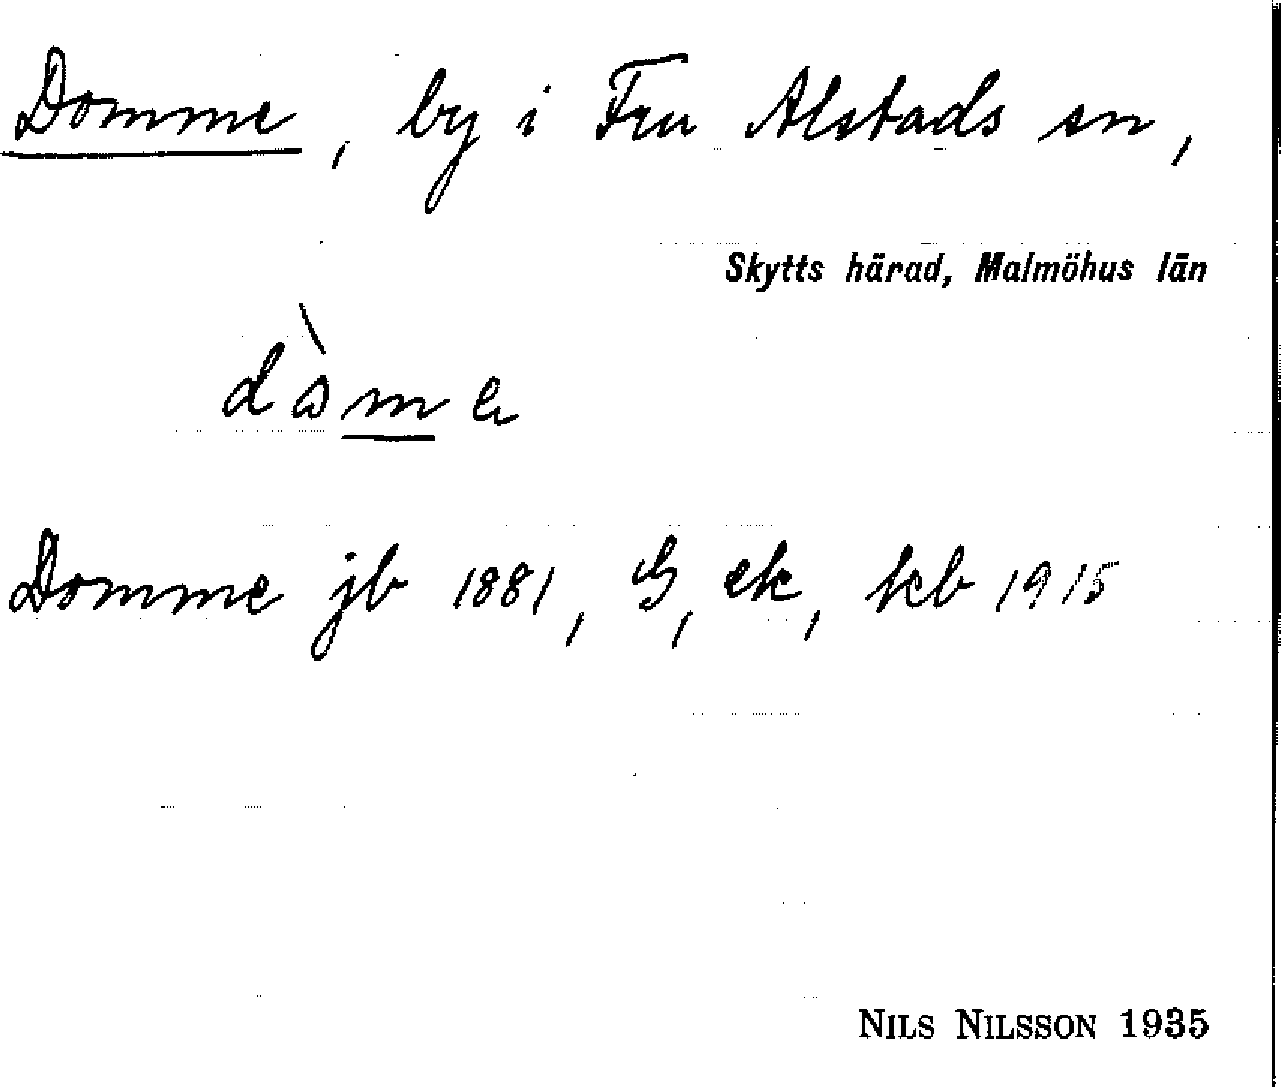 Domme, by i Fru Alstads sn,
Skytts härad, Malmöhus län
dòme
Domme jb 1881, G, ek, kb 1915
NILS NILSSON 1935